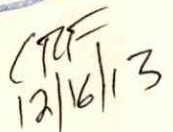 CRF
12/16/13